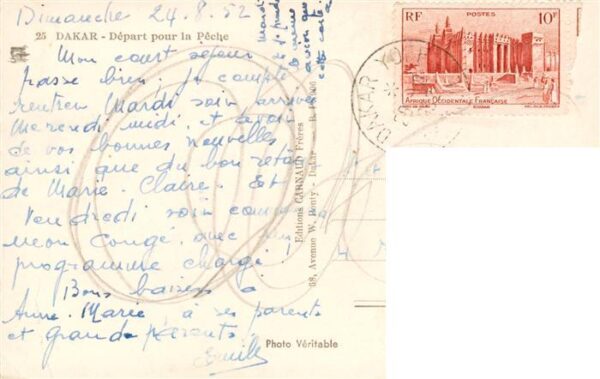 Dimanche 24.8.52
25 DAKAR - Départ pour la Pêche
Mon court séjour
passe bien. Je compte
rentrer Mardi soir arrivée
Mercredi midi, et avoir
de vos bonnes nouvelles
ainsi que du bon
de Marie-Claire. Et
Vendredi soir
mon congé avec
programme chargé!
Bons baisers à
Anne-Marie, à ses parents
et grands parents.
Emile
Mardi
je prends
le même
avion que
cette carte
Editions CARNAUD Frères
68, Avenue W. Ponty - Dakar
Photo Véritable
RF POSTES 10F
AFRIQUE OCCIDENTALE FRANÇAISE
DAKAR YOFF